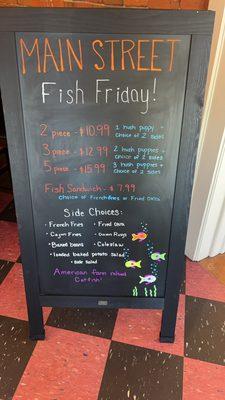 MAIN STREET
Fish Friday!
2 piece - $10.99 1 hush puppy + choice of 2 sides
3 piece - $12.99 2 hush puppies + choice of 2 sides
5 piece - $15.99 3 hush puppies + choice of 2 sides
Fish Sandwich - $7.99
Choice of French fries or Fried Okra
Side Choices:
• French Fries • Fried Okra
• Cajun Fries • Onion Rings
• Baked Beans • Coleslaw
• loaded baked potato Salad
• Side Salad
American farm raised
Catfish!